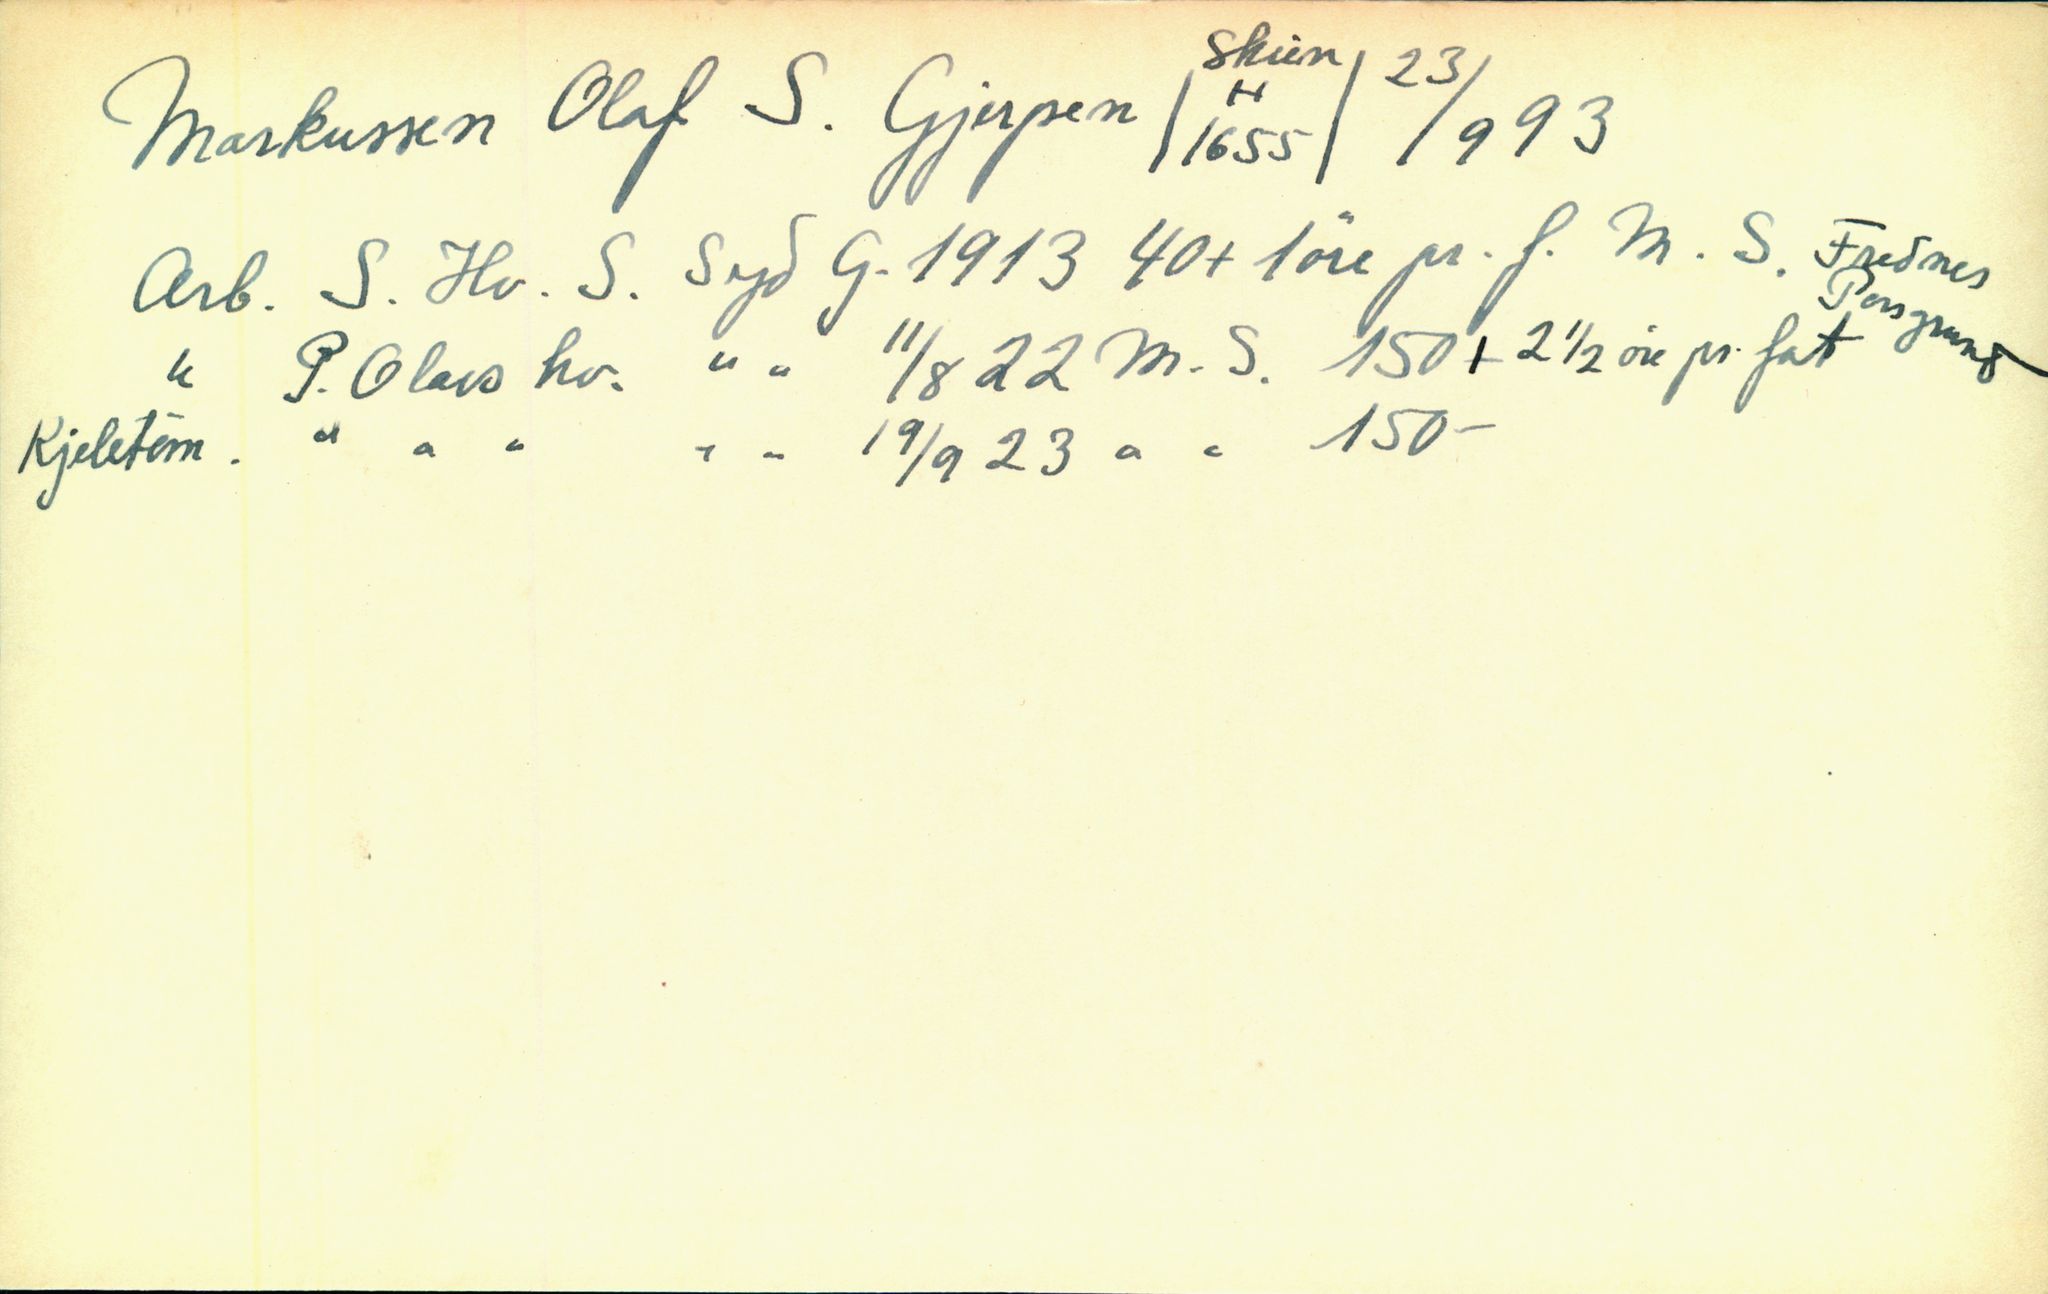 Markussen Olaf S. Gjerpen | Skien H 1655 | 23/9 93
Arb. S. Hv. S. Syd G. 1913 40 + 1 öre pr. f. M. S. Frednes Porsgrund
" P. Olavs hv. " " 11/8 22 M. S. 150 + 2 1/2 öre pr. fat
Kjeletöm. " " " " " 19/9 23 " " 150-